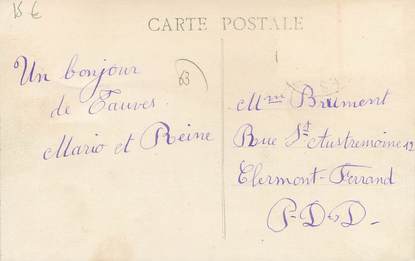 15 €
CARTE POSTALE
63
Un bonjour
de Tauves.
Mario et Reine
Mme Brümont
Rue St Austremoine 12
Clermont-Ferrand
P-D-D-